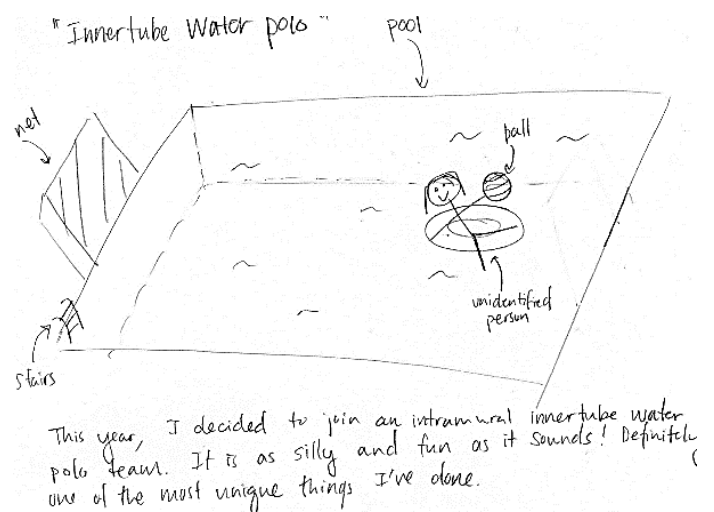 "Innertube Water polo"
pool
net
ball
unidentified
person
stairs
This year, I decided to join an intramural innertube water
polo team. It is as silly and fun as it sounds! Definitely
one of the most unique things I've done.